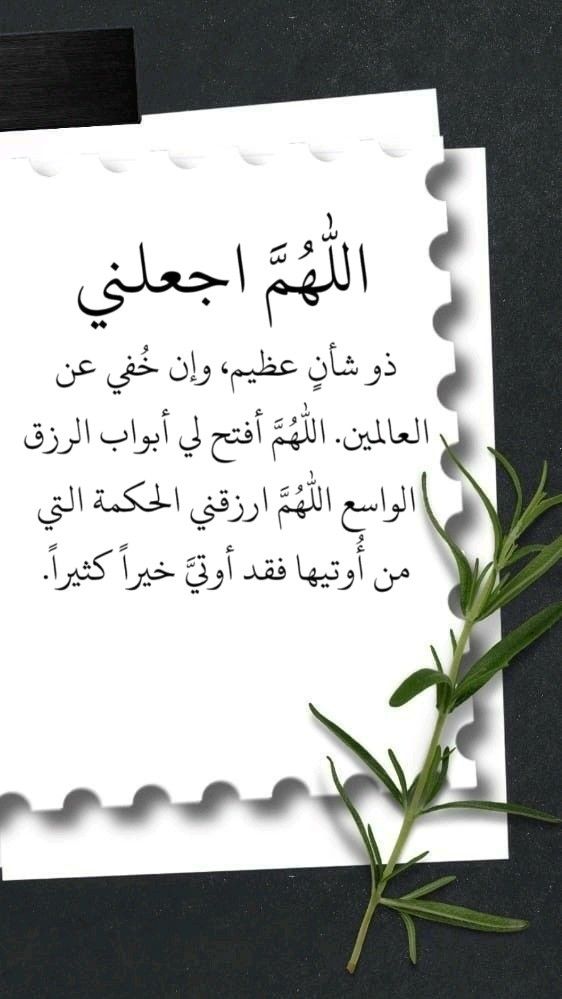 اللهُمَّ اجعلني
ذو شأنٍ عظيم، وإن خُفي عن
العالمين. اللهُمَّ أفتح لي أبواب الرزق
الواسع اللهُمَّ ارزقني الحكمة التي
من أُوتيها فقد أوتيَّ خيراً كثيراً.